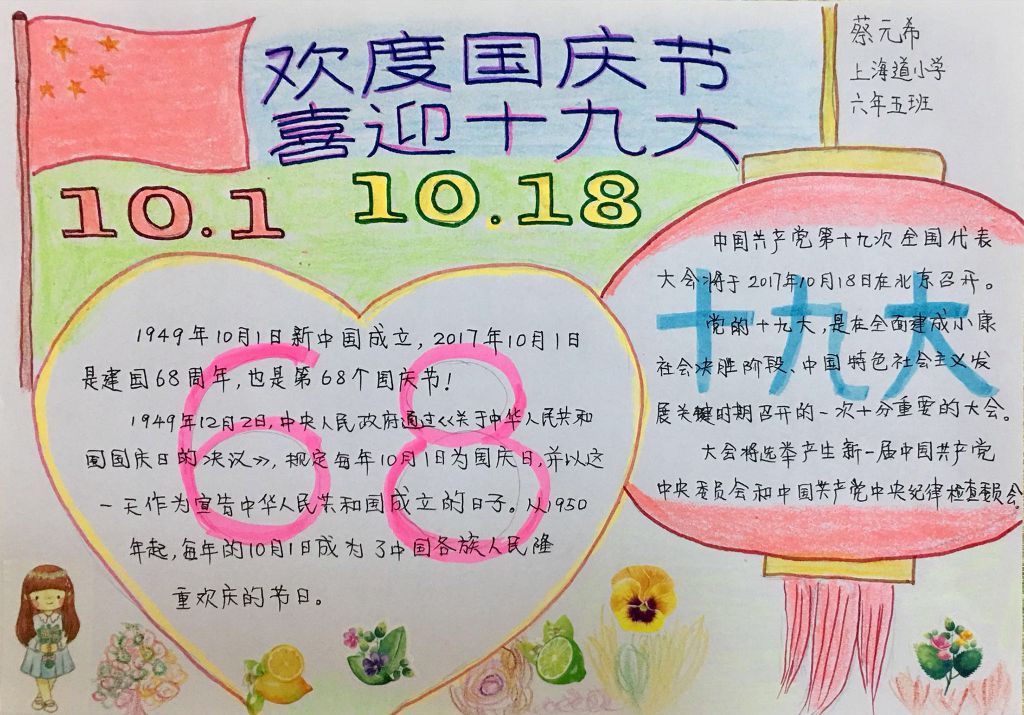 欢度国庆节
喜迎十九大
蔡元希
上海道小学
六年五班
10.1
10.18
1949年10月1日新中国成立，2017年10月1日
是建国68周年，也是第68个国庆节！
1949年12月2日，中央人民政府通过《关于中华人民共和
国国庆日的决议》，规定每年10月1日为国庆日，并以这
一天作为宣告中华人民共和国成立的日子。从1950
年起，每年的10月1日成为了中国各族人民隆
重欢庆的节日。
68
中国共产党第十九次全国代表
大会将于2017年10月18日在北京召开。
党的十九大，是在全面建成小康
社会决胜阶段、中国特色社会主义发
展关键时期召开的一次十分重要的大会。
大会将选举产生新一届中国共产党
中央委员会和中国共产党中央纪律检查委员会。
十九大